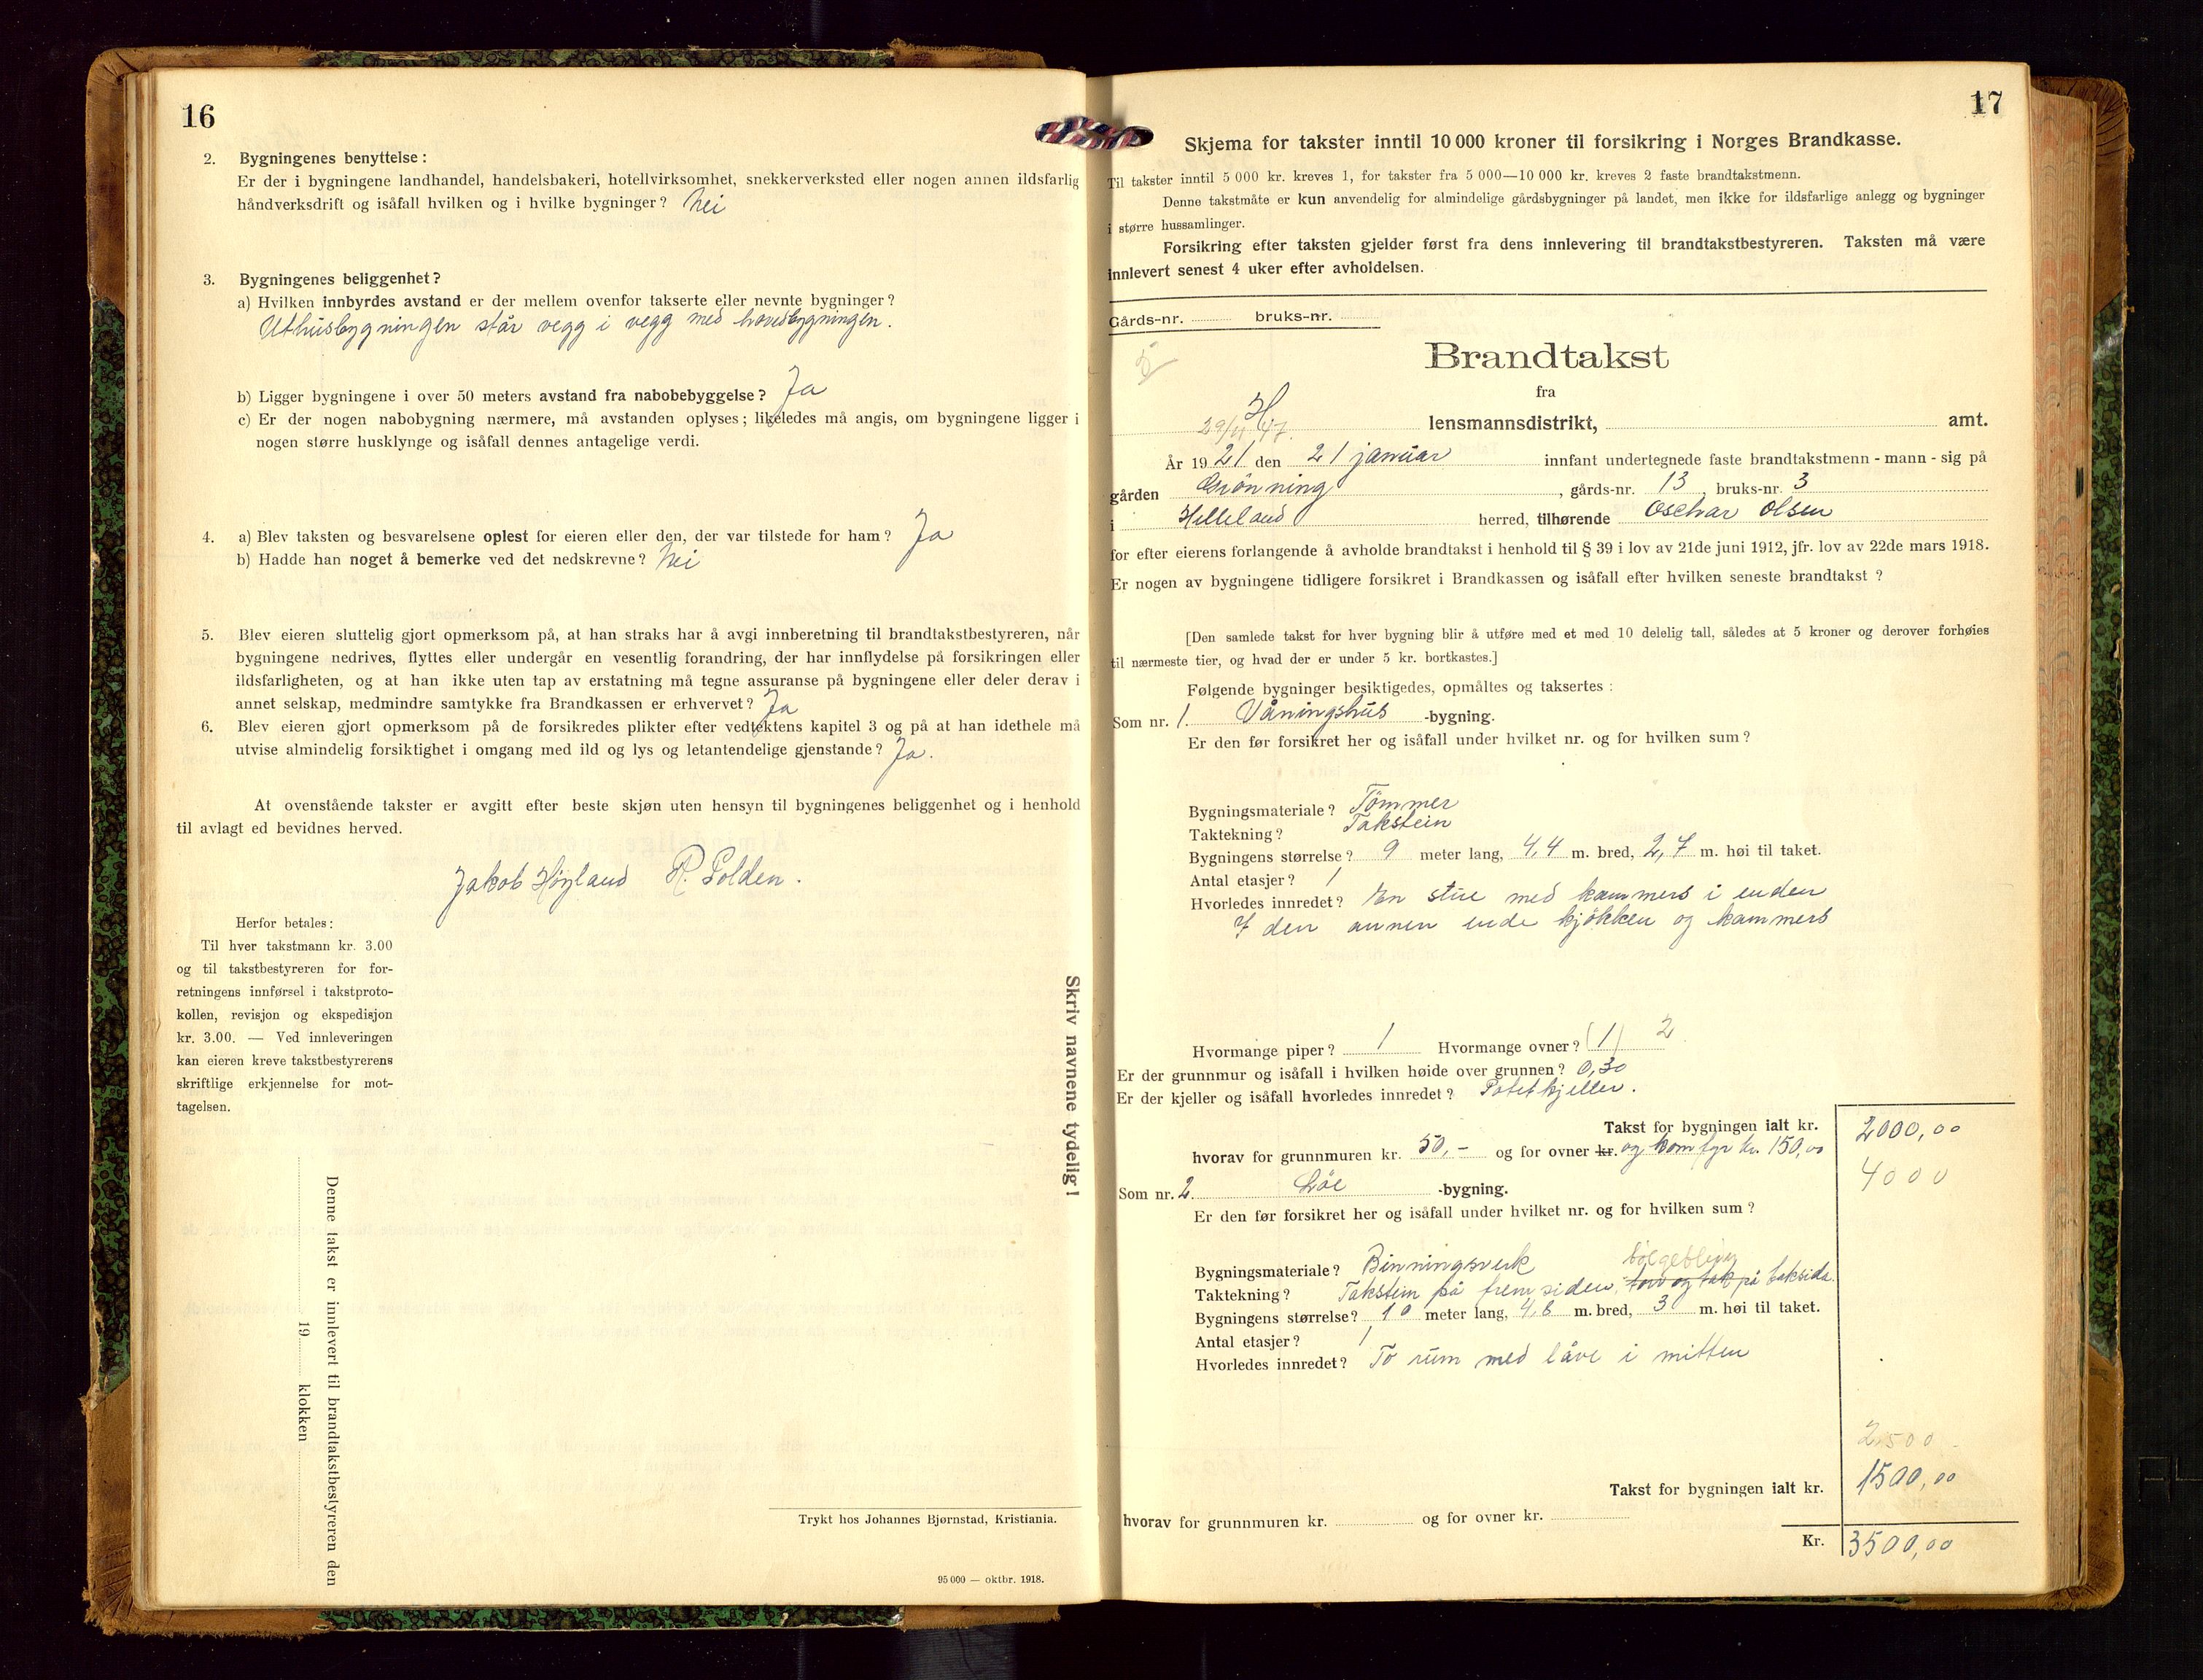 16
2. Bygningenes benyttelse:
Er der i bygningene landhandel, handelsbakeri, hotellvirksomhet, snekkerverksted eller nogen annen ildsfarlig
håndverksdrift og isåfall hvilken og i hvilke bygninger? Nei
3. Bygningenes beliggenhet?
a) Hvilken innbyrdes avstand er der mellem ovenfor takserte eller nevnte bygninger?
Uthusbygningen står vegg i vegg med hovedbygningen.
b) Ligger bygningene i over 50 meters avstand fra nabobebyggelse? Ja
c) Er der nogen nabobygning nærmere, må avstanden oplyses; likeledes må angis, om bygningene ligger i
nogen større husklynge og isåfall dennes antagelige verdi.
4. a) Blev taksten og besvarelsene oplest for eieren eller den, der var tilstede for ham? Ja
b) Hadde han noget å bemerke ved det nedskrevne? Nei
5. Blev eieren sluttelig gjort opmerksom på, at han straks har å avgi innberetning til brandtakstbestyreren, når
bygningene nedrives, flyttes eller undergår en vesentlig forandring, der har innflydelse på forsikringen eller
ildsfarligheten, og at han ikke uten tap av erstatning må tegne assuranse på bygningene eller deler derav i
annet selskap, medmindre samtykke fra Brandkassen er erhvervet? Ja
6. Blev eieren gjort opmerksom på de forsikredes plikter efter vedtektens kapitel 3 og på at han idethele må
utvise almindelig forsiktighet i omgang med ild og lys og letantendelige gjenstande? Ja.
At ovenstående takster er avgitt efter beste skjøn uten hensyn til bygningenes beliggenhet og i henhold
til avlagt ed bevidnes herved.
Jakob Høyland R. Polden.
Herfor betales:
Til hver takstmann kr. 3.00
og til takstbestyreren for for-
retningens innførsel i takstproto-
kollen, revisjon og ekspedisjon
kr. 3.00. — Ved innleveringen
kan eieren kreve takstbestyrerens
skriftlige erkjennelse for mot-
tagelsen.
Denne takst er innlevert til brandtakstbestyreren den
19 klokken
Skriv navnene tydelig!
Trykt hos Johannes Bjørnstad, Kristiania.
95 000 — oktbr. 1918.
17
Skjema for takster inntil 10 000 kroner til forsikring i Norges Brandkasse.
Til takster inntil 5 000 kr. kreves 1, for takster fra 5 000—10 000 kr. kreves 2 faste brandtakstmenn.
Denne takstmåte er kun anvendelig for almindelige gårdsbygninger på landet, men ikke for ildsfarlige anlegg og bygninger
i større hussamlinger.
Forsikring efter taksten gjelder først fra dens innlevering til brandtakstbestyreren. Taksten må være
innlevert senest 4 uker efter avholdelsen.
Gårds-nr. bruks-nr.
5
Brandtakst
fra
H
29/11 47. lensmannsdistrikt, amt.
År 1921 den 21 januar innfant undertegnede faste brandtakstmenn - mann - sig på
gården Grönning, gårds-nr. 13, bruks-nr. 3
i Helleland herred, tilhørende Oschar Olsen
for efter eierens forlangende å avholde brandtakst i henhold til § 39 i lov av 21de juni 1912, jfr. lov av 22de mars 1918.
Er nogen av bygningene tidligere forsikret i Brandkassen og isåfall efter hvilken seneste brandtakst?
[Den samlede takst for hver bygning blir å utføre med et med 10 delelig tall, således at 5 kroner og derover forhøies
til nærmeste tier, og hvad der er under 5 kr. bortkastes.]
Følgende bygninger besiktigedes, opmåltes og taksertes:
Som nr. 1. Våningshus -bygning.
Er den før forsikret her og isåfall under hvilket nr. og for hvilken sum?
Bygningsmateriale? Tömmer
Taktekning? Takstein
Bygningens størrelse? 9 meter lang, 4,4 m. bred, 2,7 m. høi til taket.
Antal etasjer? 1
Hvorledes innredet? En stue med kammers i enden
I den annen ende kjökken og kammers
Hvormange piper? 1 Hvormange ovner? (1) 2
Er der grunnmur og isåfall i hvilken høide over grunnen? 0,30
Er der kjeller og isåfall hvorledes innredet? Potetkjeller.
Takst for bygningen ialt kr. 2000,00
hvorav for grunnmuren kr. 50,- og for ovner kr. og komfyr kr. 150,00
4000
Som nr. 2. Löe -bygning.
Er den før forsikret her og isåfall under hvilket nr. og for hvilken sum?
Bygningsmateriale? Binningsverk bölgeblikk
Taktekning? Takstein på frem siden, torv og tak på baksida.
Bygningens størrelse? 10 meter lang, 4,8 m. bred, 3 m. høi til taket.
Antal etasjer? 1
Hvorledes innredet? To rum med låve i mitten
2500 -
Takst for bygningen ialt kr. 1500,00
hvorav for grunnmuren kr. og for ovner kr.
Kr. 3500,00